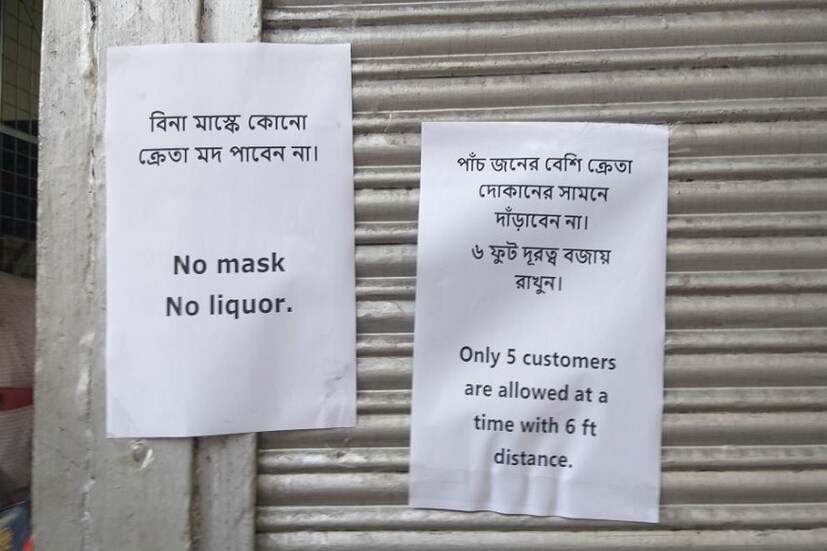 বিনা মাস্কে কোনো
ক্রেতা মদ পাবেন না।
No mask
No liquor.
পাঁচ জনের বেশি ক্রেতা
দোকানের সামনে
দাঁড়াবেন না।
৬ ফুট দূরত্ব বজায়
রাখুন।
Only 5 customers
are allowed at a
time with 6 ft
distance.